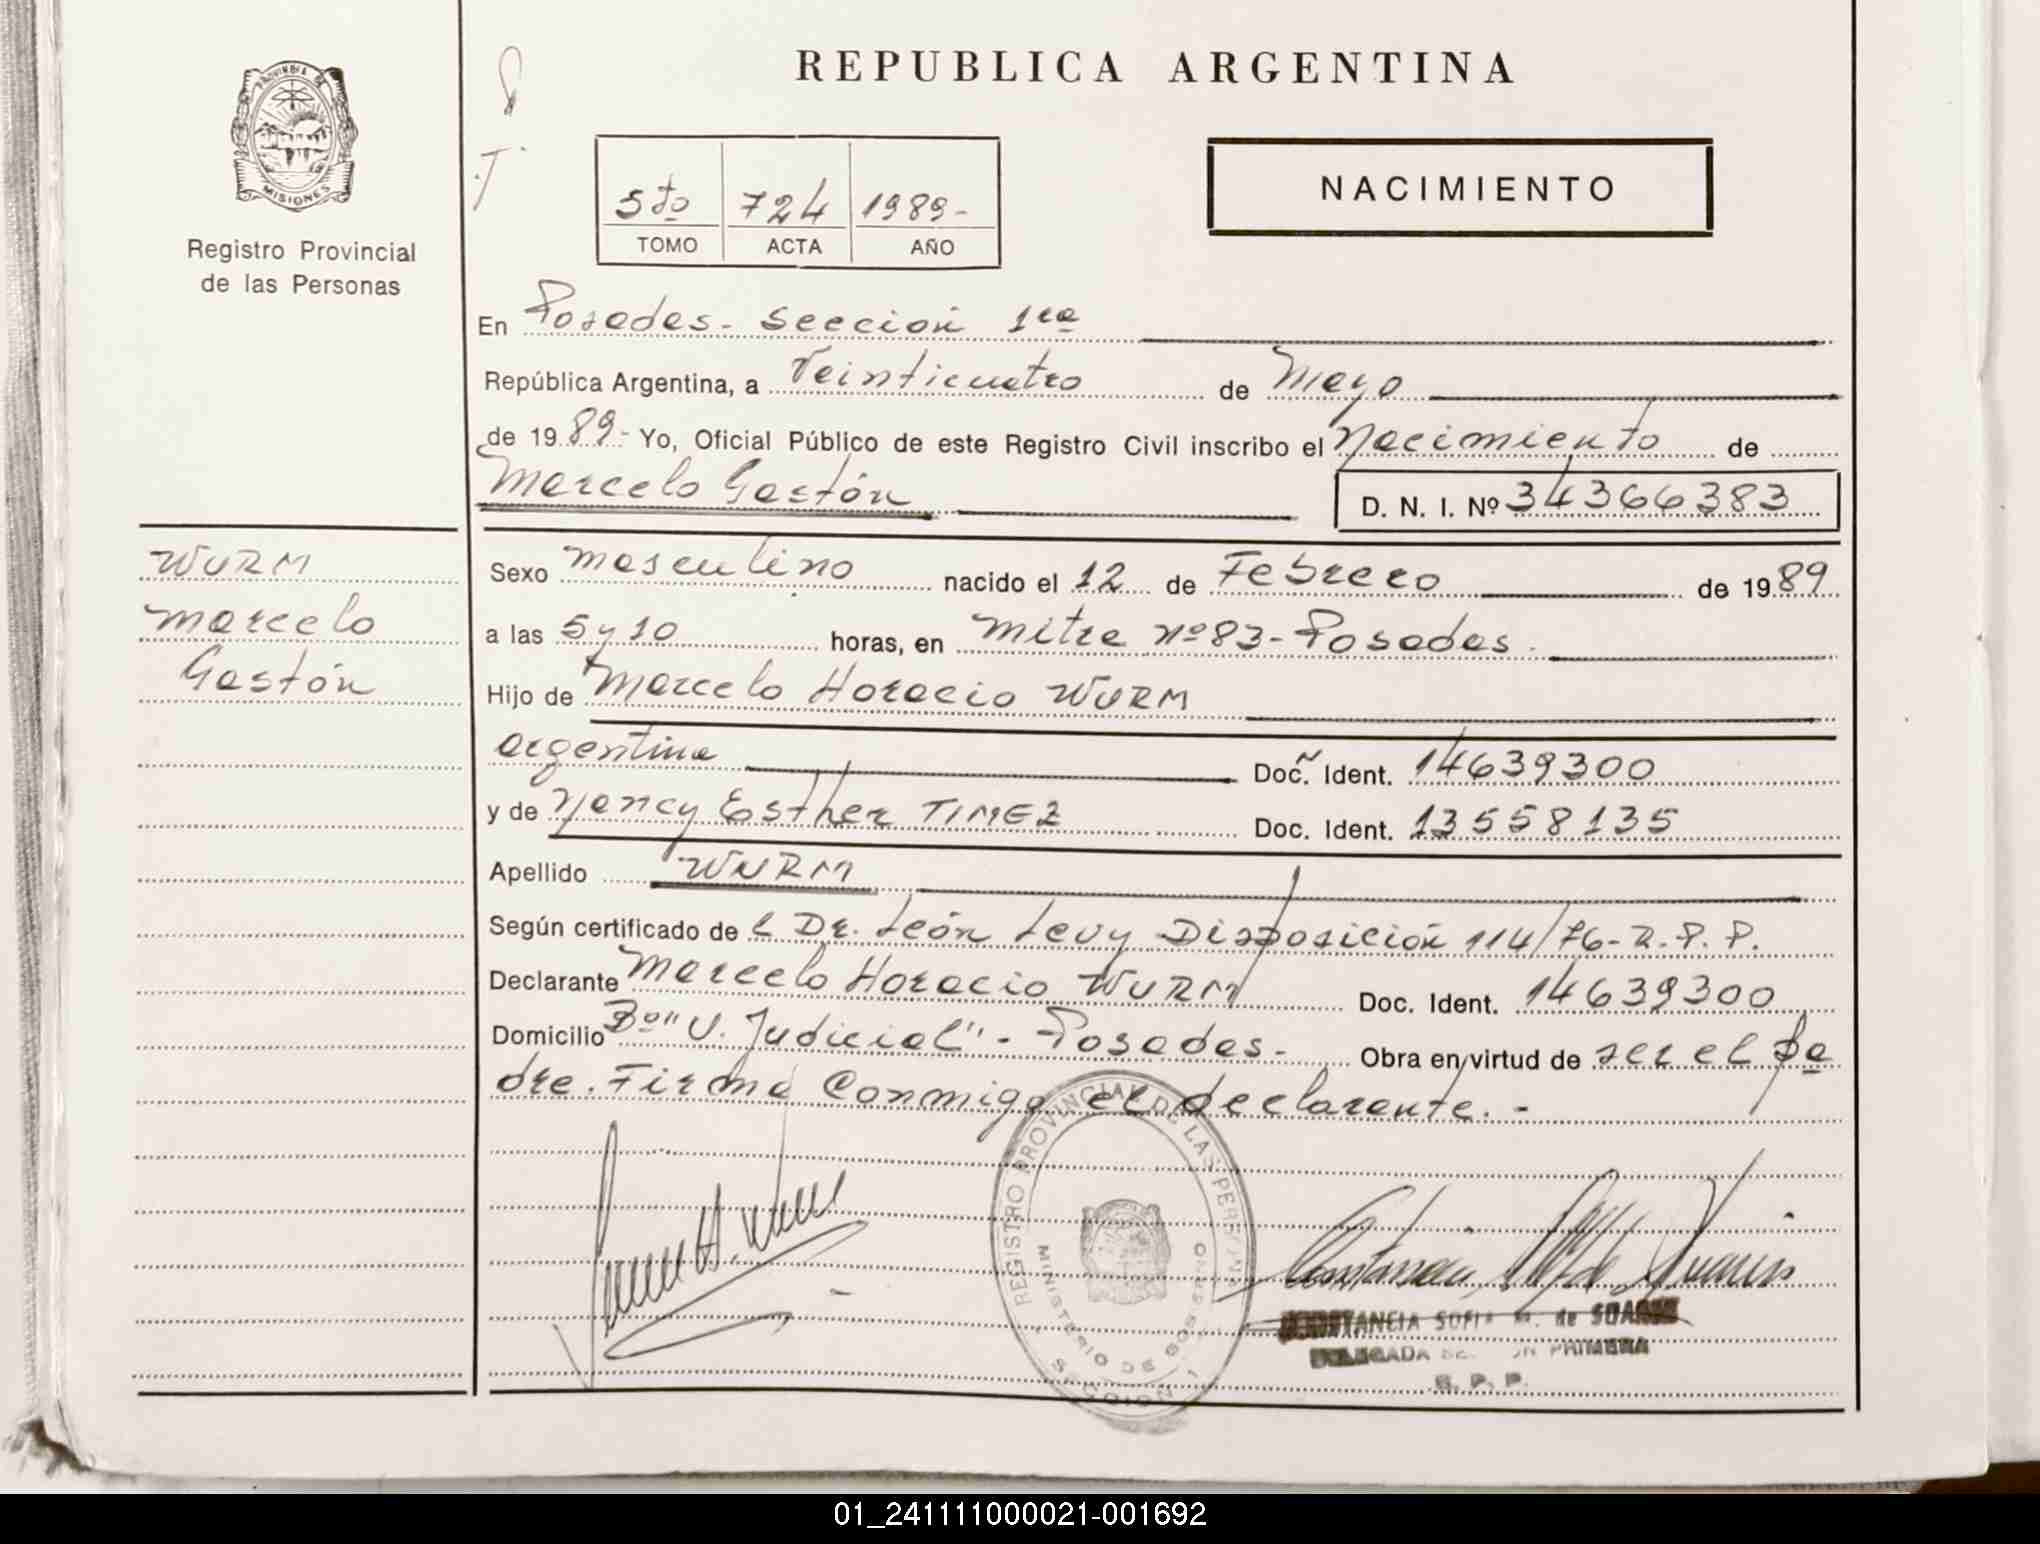 REPUBLICA ARGENTINA
PROVINCIA DE
MISIONES
Registro Provincial
de las Personas
5to 724 1989-
TOMO ACTA AÑO
NACIMIENTO
En Posadas - Sección 1ra
República Argentina, a Veinticuatro de Mayo
de 1989- Yo, Oficial Público de este Registro Civil inscribo el Nacimiento de
Marcelo Gastón D. N. I. Nº 34366383
WURM
Marcelo
Gastón
Sexo masculino nacido el 12 de Febrero de 1989
a las 5 y 10 horas, en Mitre nº 83 - Posadas.
Hijo de Marcelo Horacio WURM
argentina Doc. Ident. 14639300
y de Nancy Esther TIMEZ Doc. Ident. 13558135
Apellido WURM
Según certificado de l Dr. León Levy Disposición 114/76-R.P.P.
Declarante Marcelo Horacio WURM Doc. Ident. 14639300
Domicilio Bº "U. Judicial" - Posadas - Obra en virtud de ser el pa
dre. Firma Conmigo el declarante. -
REGISTRO PROVINCIAL DE LAS PERSONAS
MINISTERIO DE GOBIERNO
SECCION 1
CONSTANCIA SOFIA de SUAREZ
DELEGADA SECCION PRIMERA
R. P. P.
01_241111000021-001692